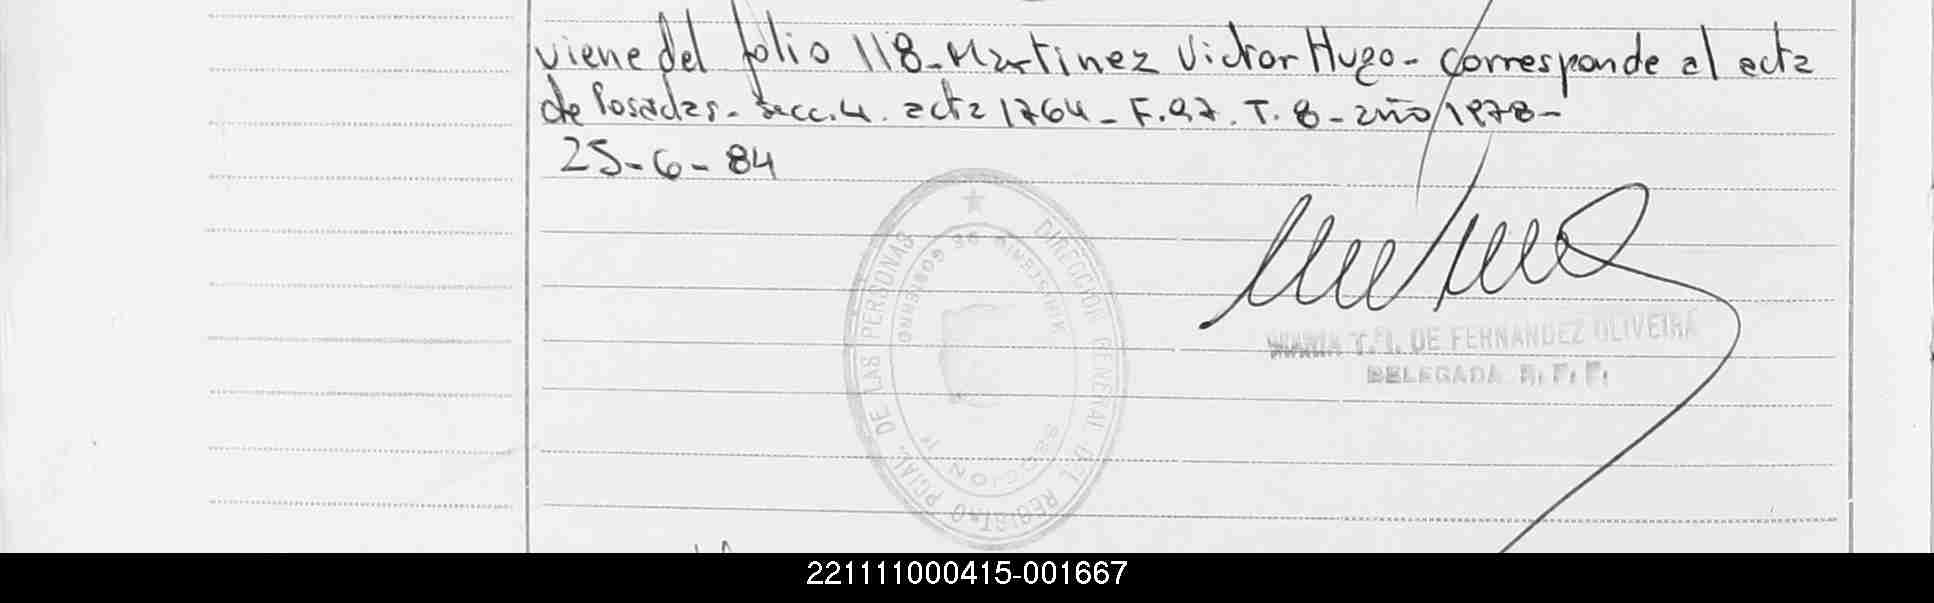 viene del folio 118 - Martinez Victor Hugo - Corresponde al acta
de Posadas - Secc. 4. acta 1764 - F. 97. T. 8 - año 1978 -
25 - 6 - 84
DIRECCION GENERAL DEL REGISTRO PCIAL. DE LAS PERSONAS
MINISTERIO DE GOBIERNO
SECCION 1ª
MARIA T. I. DE FERNANDEZ OLIVEIRA
DELEGADA
221111000415-001667